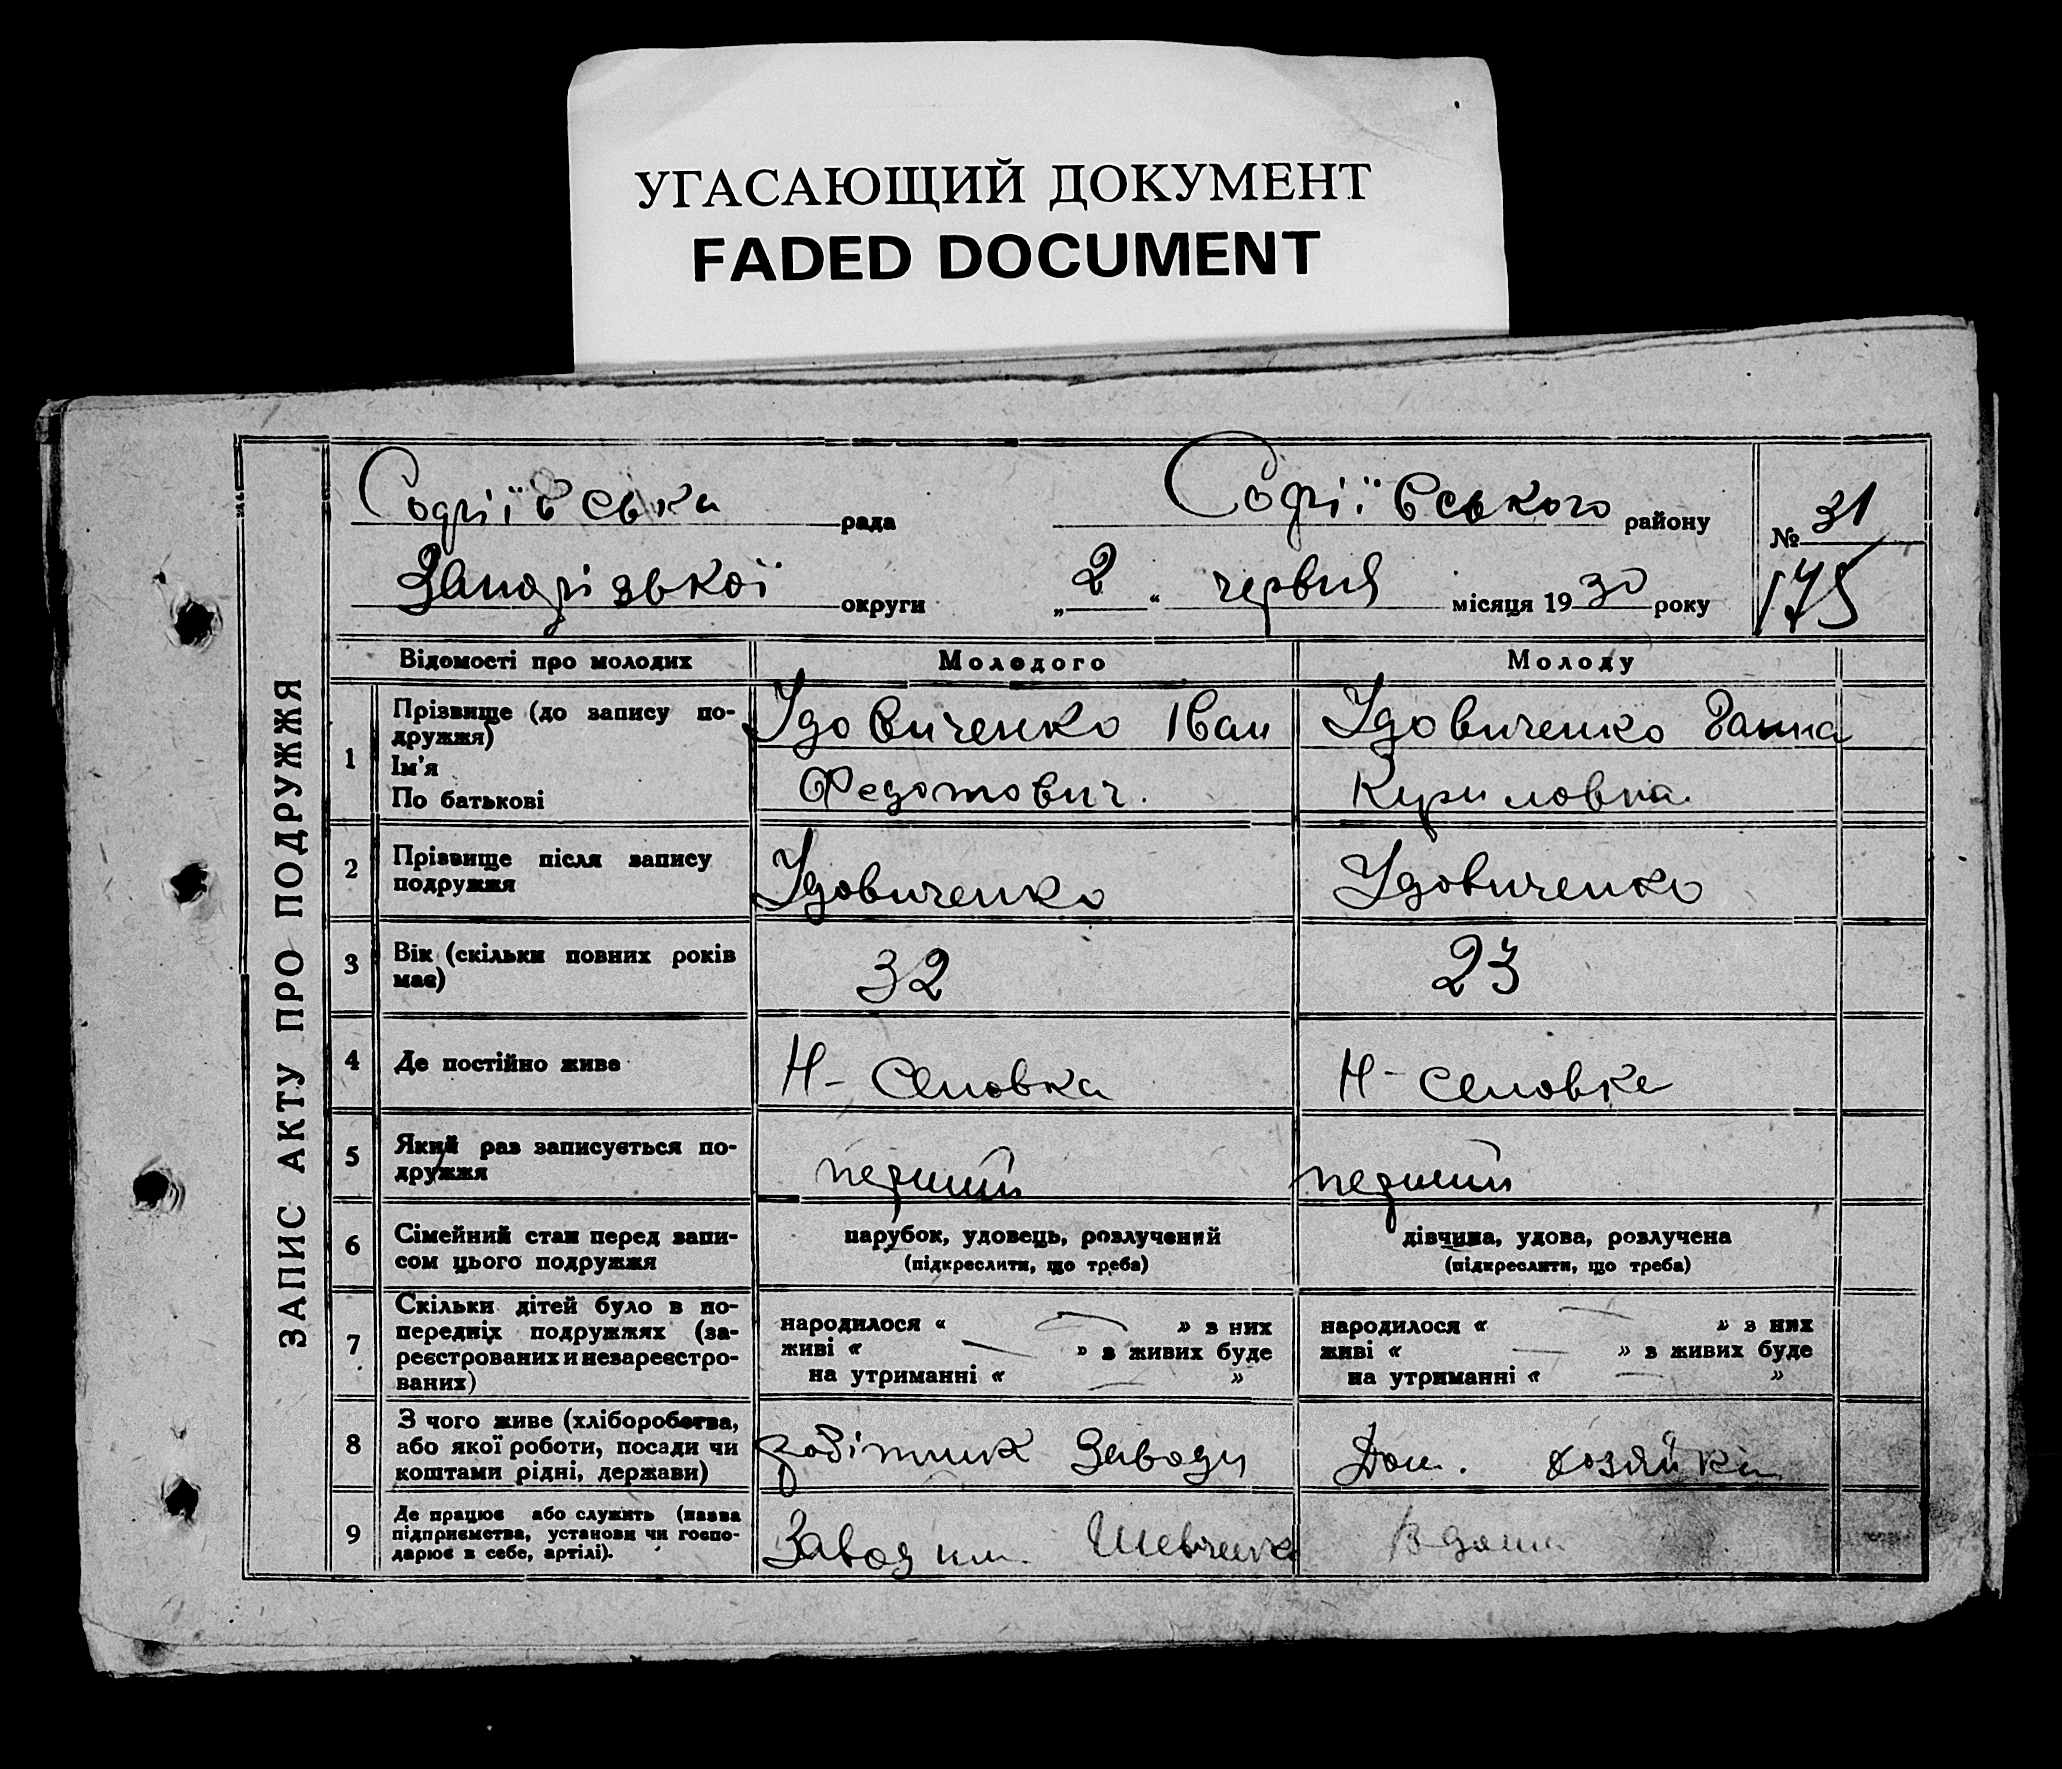 УГАСАЮЩИЙ ДОКУМЕНТ
FADED DOCUMENT
ЗАПИС АКТУ ПРО ПОДРУЖЖЯ
Софіївська рада Софіївського району № 31
Запорізької округи „2“ червня місяця 1930 року 175
Відомості про молодих Молодого Молоду
1 Прізвище (до запису по-
дружжя)
Ім'я
По батькові
Удовиченко Іван
Федотович.
Удовиченко Ганна
Кириловна.
2 Прізвище після запису
подружжя
Удовиченко Удовиченко
3 Вік (скільки повних років
має)
32 23
4 Де постійно живе
5 Який раз записується по-
дружжя
перший перший
6 Сімейний стан перед запи-
сом цього подружжя
парубок, удовець, розлучений
(підкреслити, що треба)
дівчина, удова, розлучена
(підкреслити, що треба)
7 Скільки дітей було в по-
передніх подружжях (за-
реєстрованих и незареєстро-
ваних)
народилося « — » з них
живі « — » в живих буде
на утриманні « — »
народилося « — » з них
живі « — » в живих буде
на утриманні « — »
8 З чого живе (хліборобства,
або якої роботи, посади чи
коштами рідні, держави)
робітник Заводу
Дом. хозяйка
9 Де працює або служить (назва
підприємства, установи чи госпо-
дарює в себе, артілі).
Завод им. Шевченка
В дома